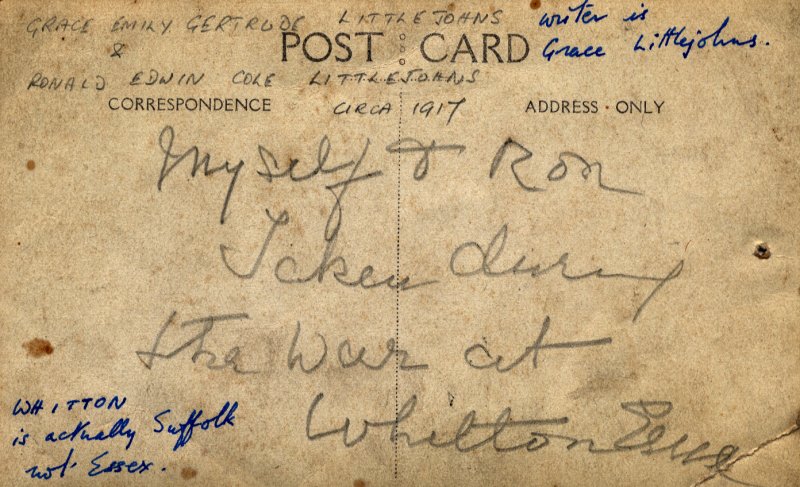 GRACE EMILY GERTRUDE LITTLEJOHNS
&
RONALD EDWIN COLE LITTLEJOHNS
CIRCA 1917
writer is
Grace Littlejohns.
POST CARD
CORRESPONDENCE
ADDRESS · ONLY
Myself & Ron
Taken during
the War at
Whitton Essex
WHITTON
is actually Suffolk
not Essex.